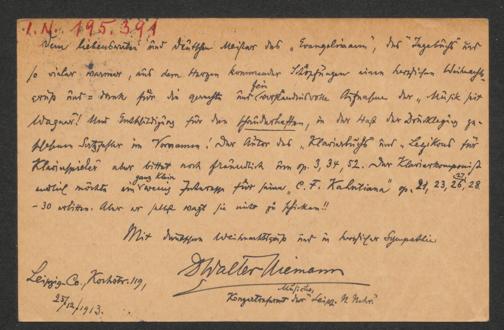 I.N. 195.391
Dem liebenswerten und deutschen Meister des „Evangelimann", des „Tagebuchs" und
so vieler warmer, aus dem Herzen kommender Schöpfungen einen herzlichen Weihnachts-
gruß und = dank für die gerechte und fein verständnisvolle Aufnahme der „Musik seit
Wagner"! Und Entschuldigung für den schauderhaften, in der Hast der Drucklegung ge-
bliebenen Satzfehler im Vornamen! Der Autor des „Klavierbuchs" und „Lexikons für
Klavierspieler" aber bittet noch freundlich um op. 3, 34, 52. Der Klavierkomponist
endlich möchte ein ganz klein wenig Interesse für seine „C. F." op. 21, 23, 26, 27, 28
-30 erbitten. Aber er selbst wagt sie nicht zu schicken!!
Mit deutschem Weihnachtsgruß und in herzlicher Sympathie
Dr Walter Niemann
Musikschr.,
Konzertreferent der „Leipz. N. Nachr."
Leipzig-Co., Kochstr. 119,
23/12/1913.